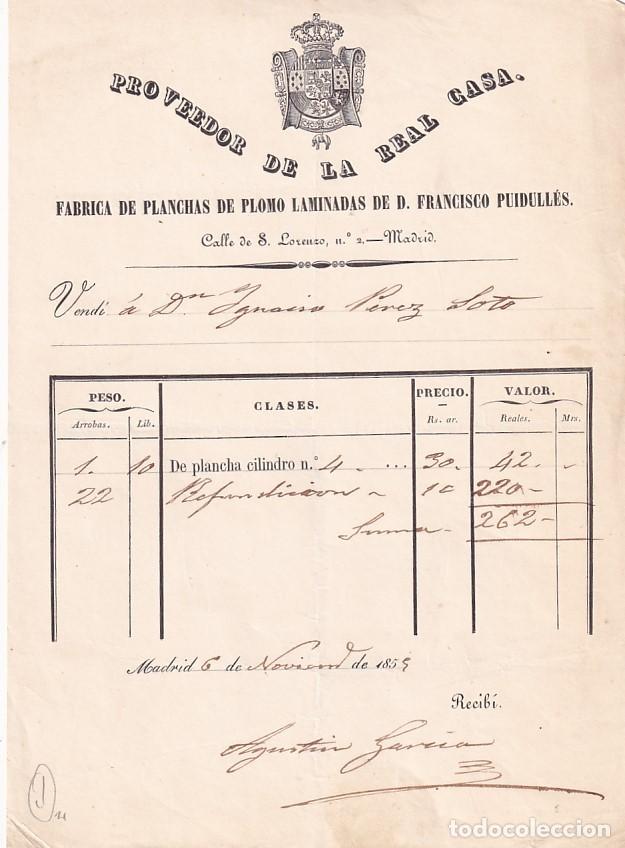 PROVEEDOR DE LA REAL CASA.
FABRICA DE PLANCHAS DE PLOMO LAMINADAS DE D. FRANCISCO PUIDULLÉS.
Calle de S. Lorenzo, n.º 2.—Madrid.
Vendí á Dn Ygnacio Perez Soto
PESO. CLASES. PRECIO. VALOR.
Arrobas. Lib. Rs. ar. Reales. Mrs.
1. 10 De plancha cilindro n.º 4 - ... 30. 42. -
22 Refundicion - 10 220-
Suma - 262-
Madrid 6 de Noviemb de 185
Recibí.
Agustin Garcia
1
todocoleccion